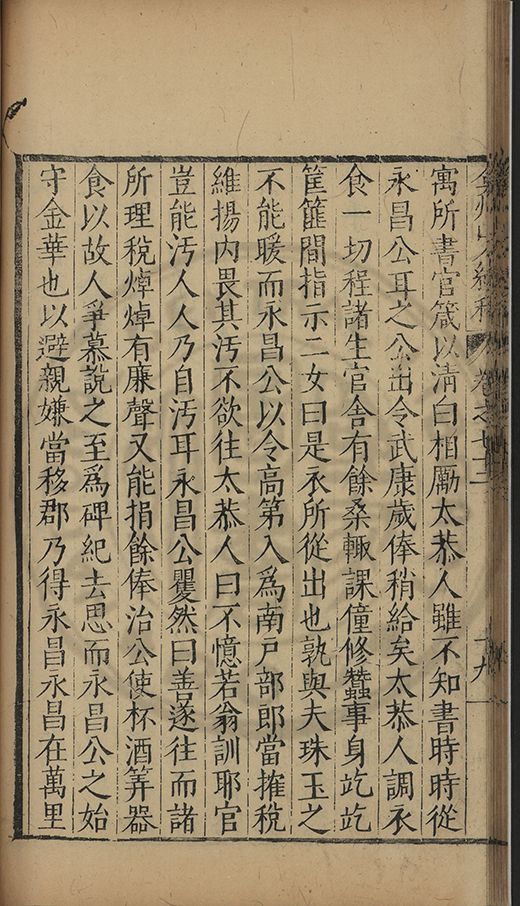 弇州山人續稿 卷之七十二 十九
寓所書官箴以清白相勵太恭人雖不知書時時從
永昌公耳之公出令武康歲俸稍給矣太恭人調衣
食一切程諸生官舍有餘桑輙課僮修蠶事身矻矻
筐篚間指示二女曰是衣所從出也孰與夫珠玉之
不能暖而永昌公以令高第入爲南戸部郎當搉稅
維揚内畏其汚不欲往太恭人曰不憶若翁訓耶官
豈能汚人人乃自汚耳永昌公瞿然曰善遂往而諸
所理稅焯焯有廉聲又能捐餘俸治公使杯酒筭器
食以故人爭慕說之至爲碑紀去思而永昌公之始
守金華也以避親嫌當移郡乃得永昌永昌在萬里